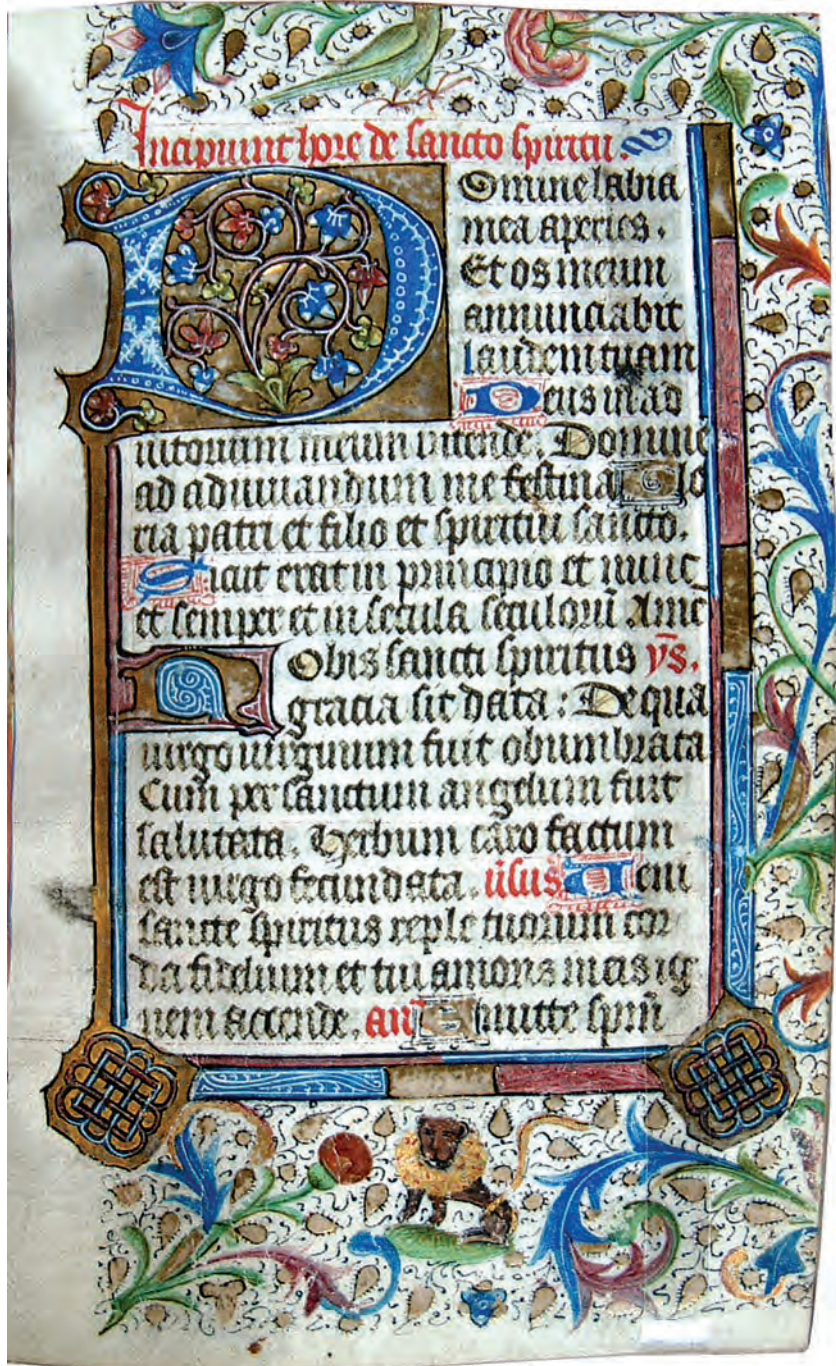 Incipiunt hore de sancto spiritu.
Domine labia
mea aperies.
Et os meum
annunciabit
laudem tuam
Deus in ad
iutorium meum intende. Domine
ad adiuuandum me festina Glo
ria patri et filio et spiritui sancto.
Sicut erat in principio et nunc
et semper et in secula seculorū Ame
Nobis sancti spiritus v̄s.
gracia sit data: De qua
uirgo uirginum fuit obumbrata
Cum per sanctum angelum fuit
salutata. Verbum caro factum
est uirgo fecundata. ūsus Ueni
sancte spiritus reple tuorum cor
da fidelium et tui amoris in eis ig
nem accende. an̄ Emitte spm̄